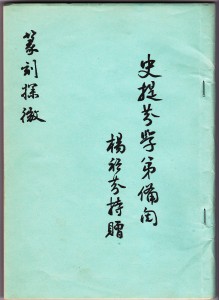 史提芬學弟備閱
楊
芬持贈
篆刻探微